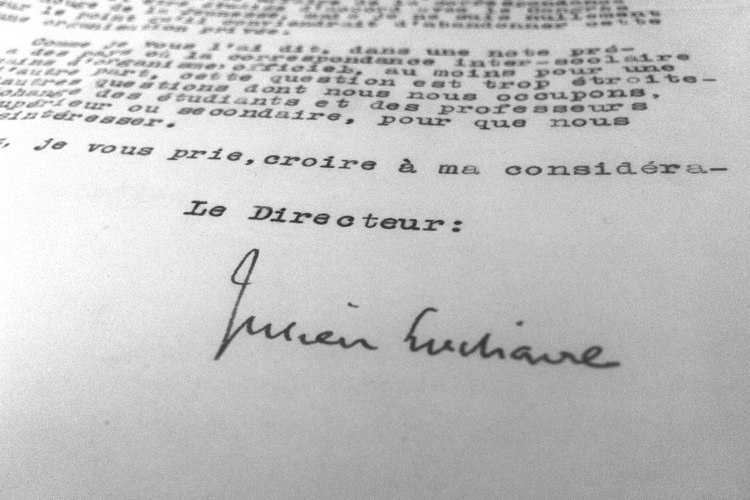 le point
d'abandonner cette
Comme je vous l'ai dit, dans une note pré-
la correspondance inter-scolaire
officiel, au moins pour une
d'autre part, cette question est trop étroite-
autres questions dont nous nous occupons,
change des étudiants et des professeurs
supérieur ou secondaire, pour que nous
sintéresser.
, je vous prie,croire à ma considéra-
Le Directeur:
Julien Luchaire